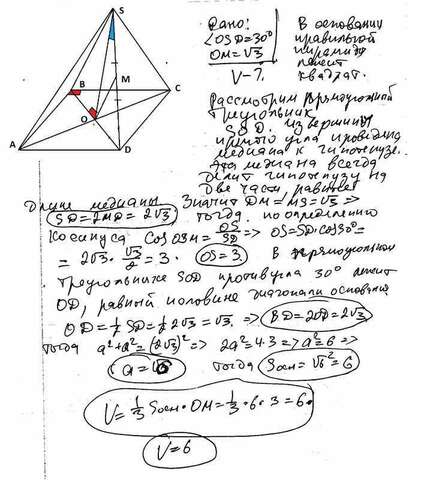 S
M
B
C
O
A
D
Дано:
∠OSD=30°
OM=√3
V-?
В основании
правильной
пирамиды
лежит
квадрат.
Рассмотрим прямоугольный
треугольник
SOD. Из вершины
прямого угла проведена
медиана к гипотенузе.
Эта медиана всегда
делит гипотенузу на
две части равные
длине медианы. Значит DM=MS=√3 ⇒
SD=2MD=2√3 тогда по определению
косинуса cos OSM = OS/SD ⇒ OS=SD·cos30°=
=2√3·√3/2=3. OS=3. В прямоугольном
треугольнике SOD против угла 30° лежит
OD, равный половине диагонали основания
OD=½SD=½2√3=√3. ⇒ BD=2OD=2√3
тогда a²+a²=(2√3)² ⇒ 2a²=4·3 ⇒ a²=6 ⇒
a=√6 тогда Sосн=√6²=6
V=⅓Sосн·OM=⅓·6·3=6.
V=6